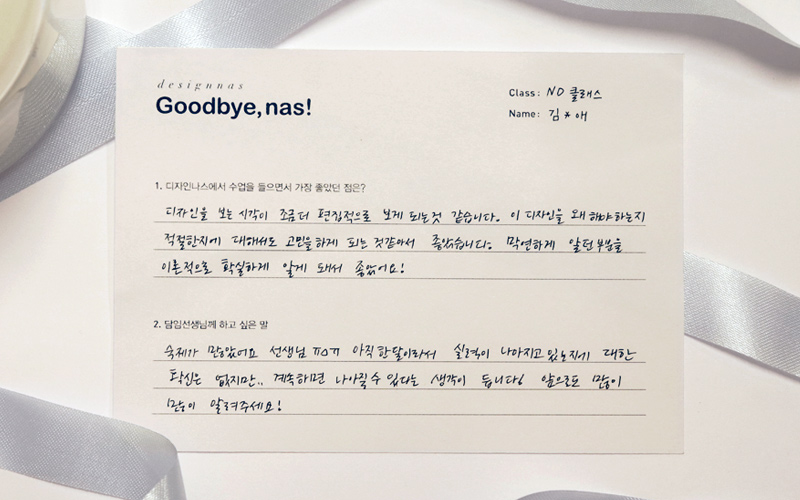 designnas
Goodbye, nas!
Class: NO 클래스
Name: 김*애
1. 디자인나스에서 수업을 들으면서 가장 좋았던 점은?
디자인을 보는 시각이 조금더 편집적으로 보게 되는것 같습니다. 이 디자인을 왜 해야하는지
적절한지에 대해서도 고민을하게 되는 것같아서 좋았습니다. 막연하게 알던부분을
이론적으로 확실하게 알게 돼서 좋았어요!
2. 담임선생님께 하고 싶은 말
숙제가 많았어요 선생님 ㅠㅁㅠ 아직 한달이라서 실력이 나아지고있는지에 대한
확신은 없지만.. 계속하면 나아질수 있다는 생각이 듭니다! 앞으로도 많이
많이 알려주세요!